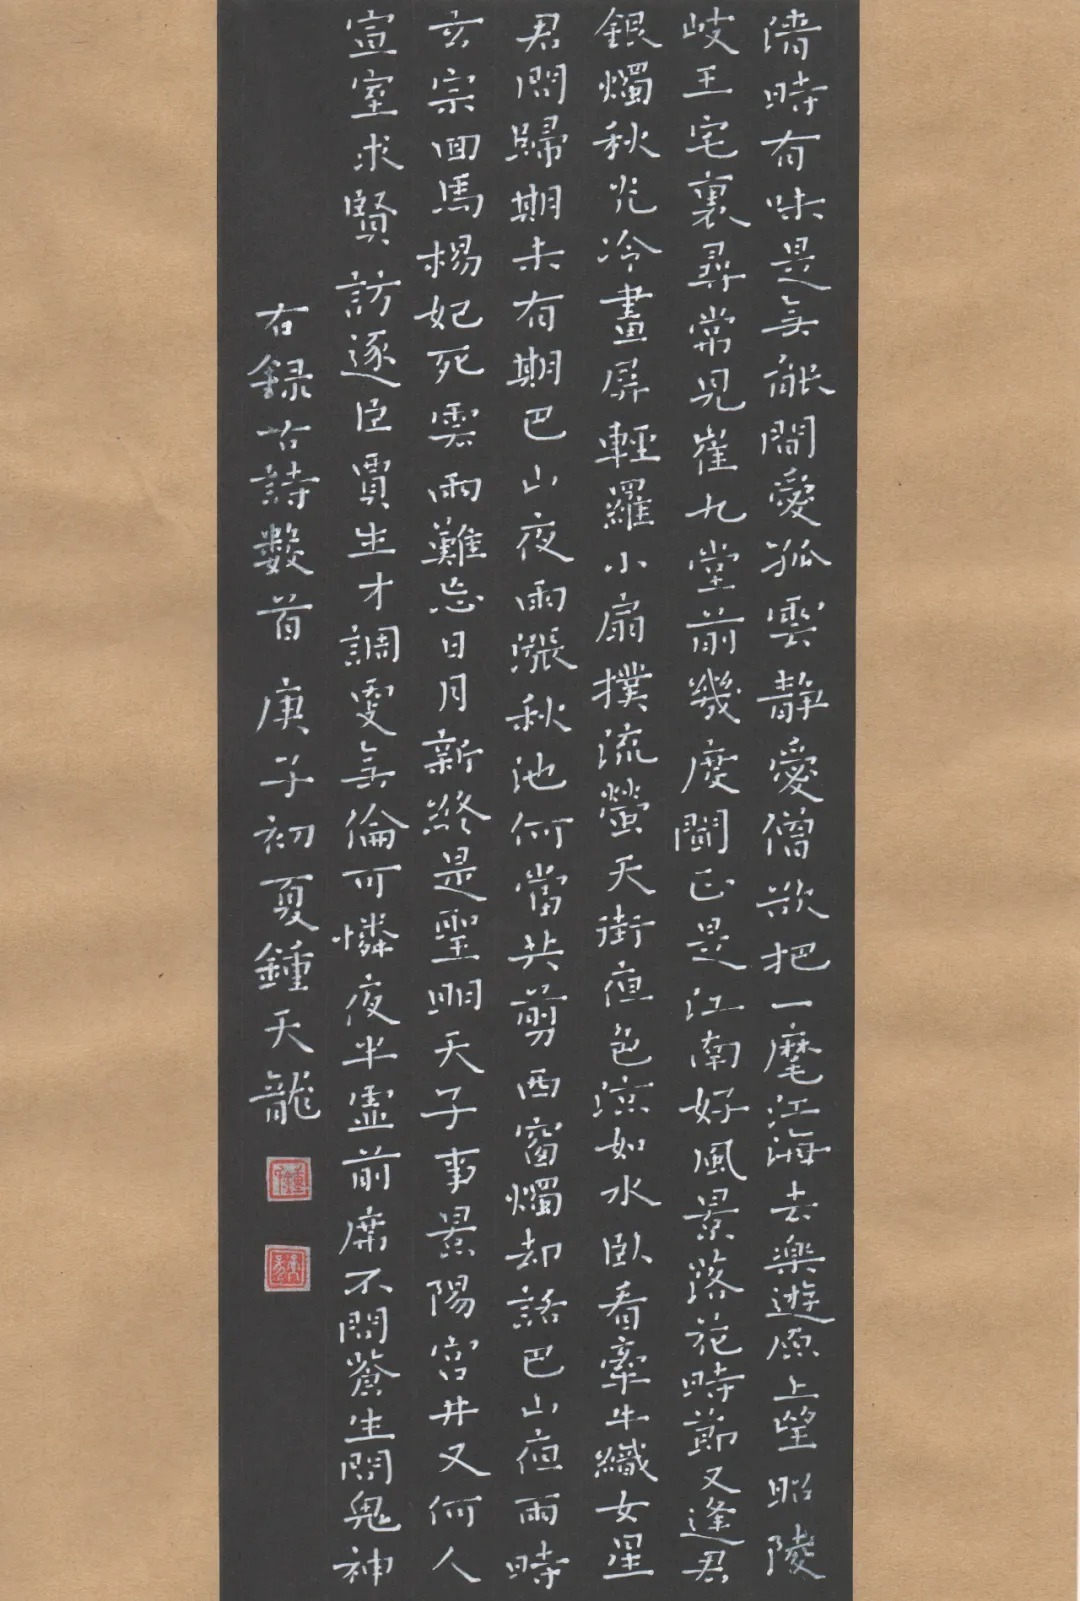 清時有味是无能閒愛孤雲靜愛僧欲把一麾江海去樂遊原上望昭陵
岐王宅裏尋常見崔九堂前幾度聞正是江南好風景落花時節又逢君
銀燭秋光冷畫屏輕羅小扇撲流螢天街夜色涼如水臥看牽牛織女星
君問歸期未有期巴山夜雨漲秋池何當共剪西窗燭却話巴山夜雨時
玄宗回馬楊妃死雲雨難忘日月新終是聖明天子事景陽宮井又何人
宣室求賢訪逐臣賈生才調更无倫可憐夜半虛前席不問蒼生問鬼神
右録古詩數首 庚子初夏鍾天龍